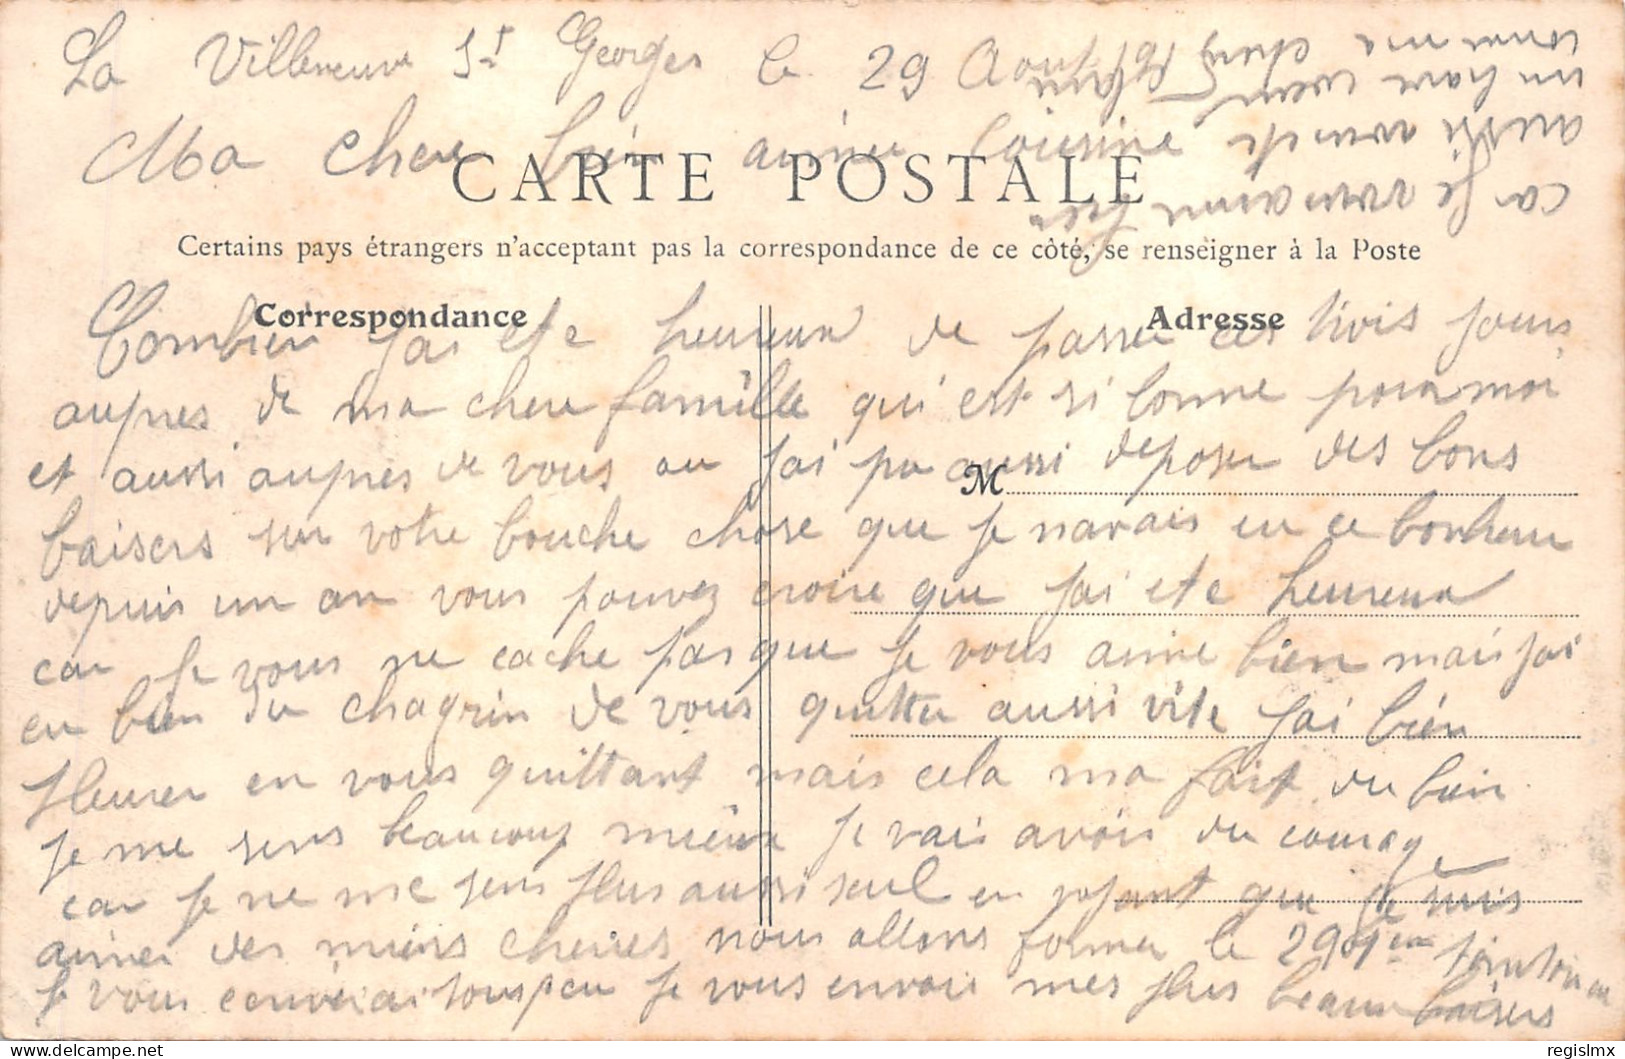 La Villeneuve St Georges le 29 Aout
Ma chere bien aimée
CARTE POSTALE
Certains pays étrangers n'acceptant pas la correspondance de ce côté, se renseigner à la Poste
Correspondance
Adresse
M
Combien jai ete heureux de passer ces trois jours
aupres de ma chere famille qui est si bonne pour moi
et aussi aupres de vous ou jai pu aussi deposer des bons
baisers sur votre bouche chose que je navais eu ce bonheur
depuis un an vous pouvez croire que jai ete heureux
car je vous ne cache pas que je vous aime bien mais jai
eu bien du chagrin de vous quitter aussi vite jai bién
pleurer en vous quittant mais cela ma fait du bien
je me sens beaucoup mieux je vais avoir du courage
car je ne me sens plus aussi seul en voyant que je suis
aimer des miens cheries nous allons former le 290
je vous ecriverai sous peu je vous envoie mes plus beaux baisers
car je vous aime bien
aussi
un bon
comme
regislmx